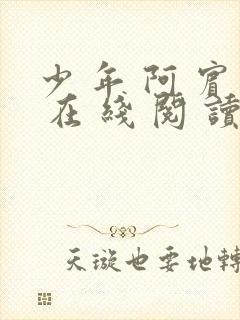 少年阿賓
在綫閱讀
天璇也要地轉